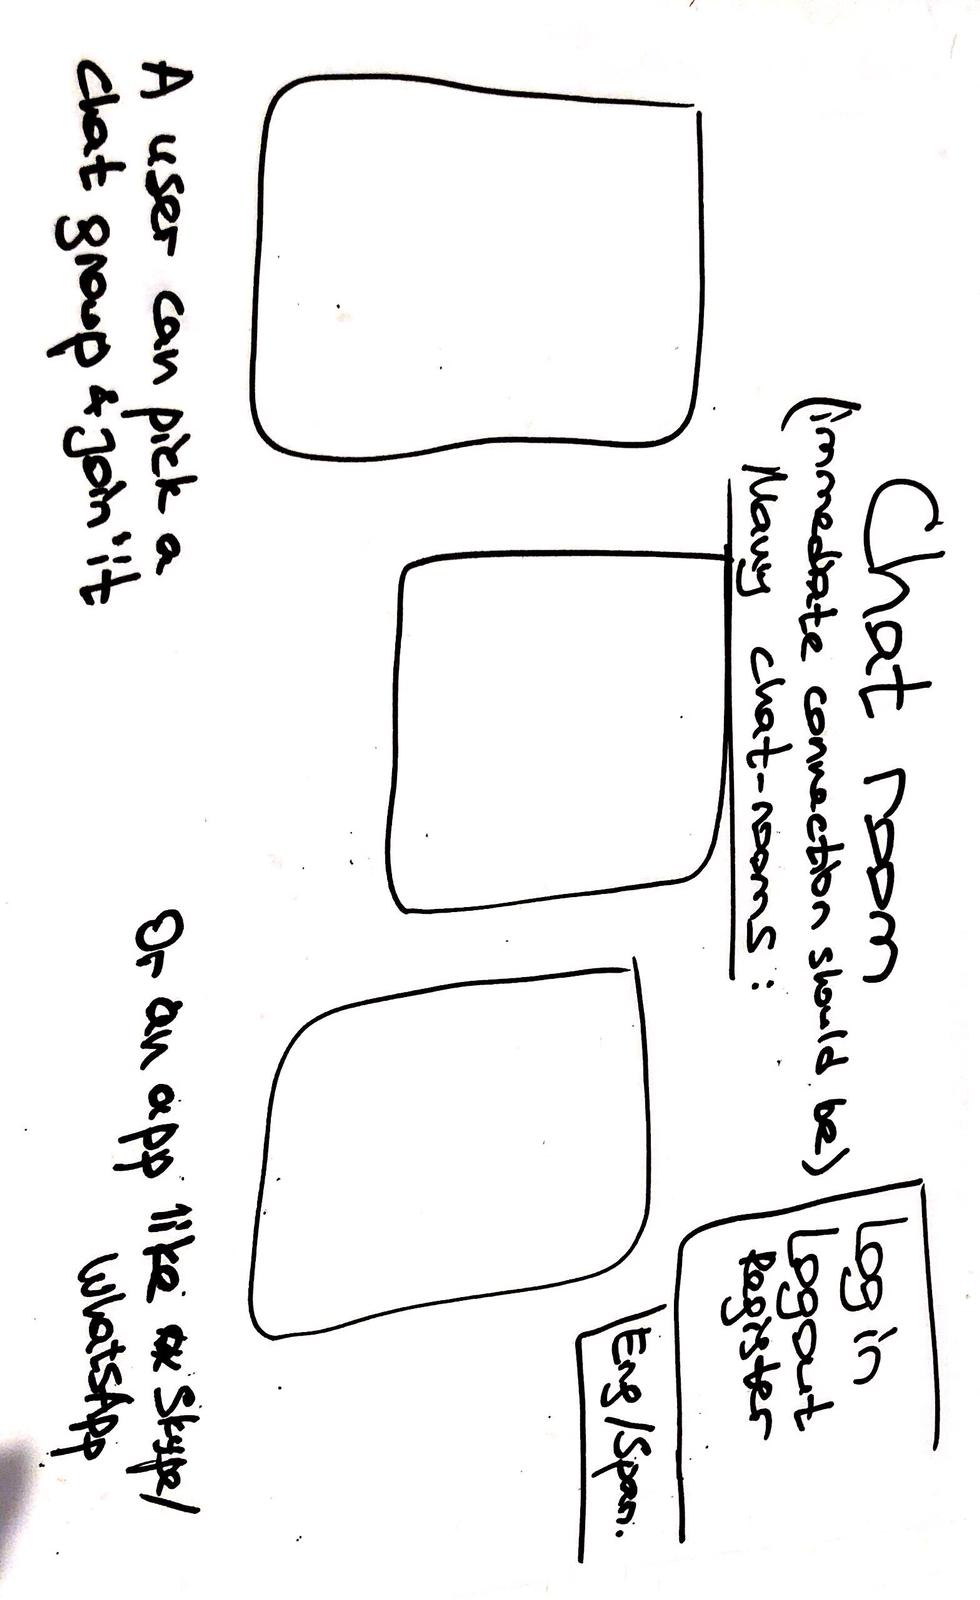 Chat room
(immediate connection should be)
Many chat-rooms:
Log in
Logout
Register
Eng/Span.
A user can pick a
chat group & Join it
Or an app like Skype/
WhatsApp